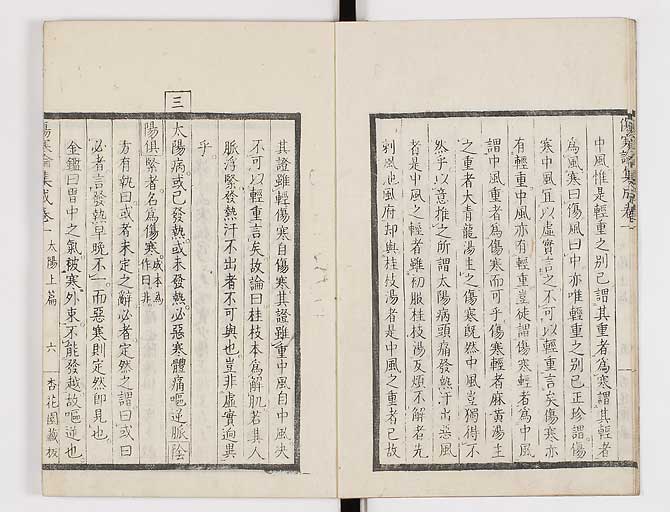 傷寒論集成卷一
中風惟是輕重之別已謂其重者為寒謂其輕者
為風寒曰傷風曰中亦唯輕重之別已正珍謂傷
寒中風宜以虛實言之不可以輕重言矣傷寒亦
有輕重中風亦有輕重豈徒謂傷寒輕者為中風
謂中風重者為傷寒而可乎傷寒輕者麻黃湯主
之重者大青龍湯主之傷寒既然中風豈獨得不
然乎以意推之所謂太陽病頭痛發熱汗出惡風
者是中風之輕者雖初服桂枝湯反煩不解者先
刺風池風府却與桂枝湯者是中風之重者已故
其證雖輕傷寒自傷寒其證雖重中風自中風決
不可以輕重言矣故論曰桂枝本為解肌若其人
脈浮緊發熱汗不出者不可與也豈非虛實迥異
乎
三
太陽病或已發熱或未發熱必惡寒體痛嘔逆脈陰
陽俱緊者名為傷寒成本為作曰非
方有執曰或者未定之辭必者定然之謂曰或曰
必者言發熱早晚不一而惡寒則定然即見也
金鑑曰胃中之氣被寒外束不能發越故嘔逆也
傷寒論集成卷一 太陽上篇 六 杏花園藏板